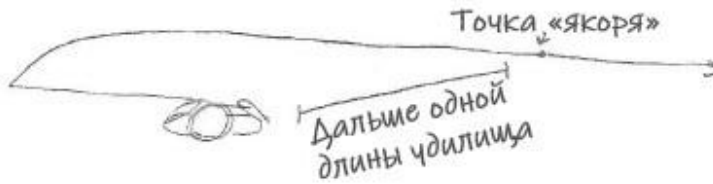 Точка «якоря»
Дальше одной
длины удилища